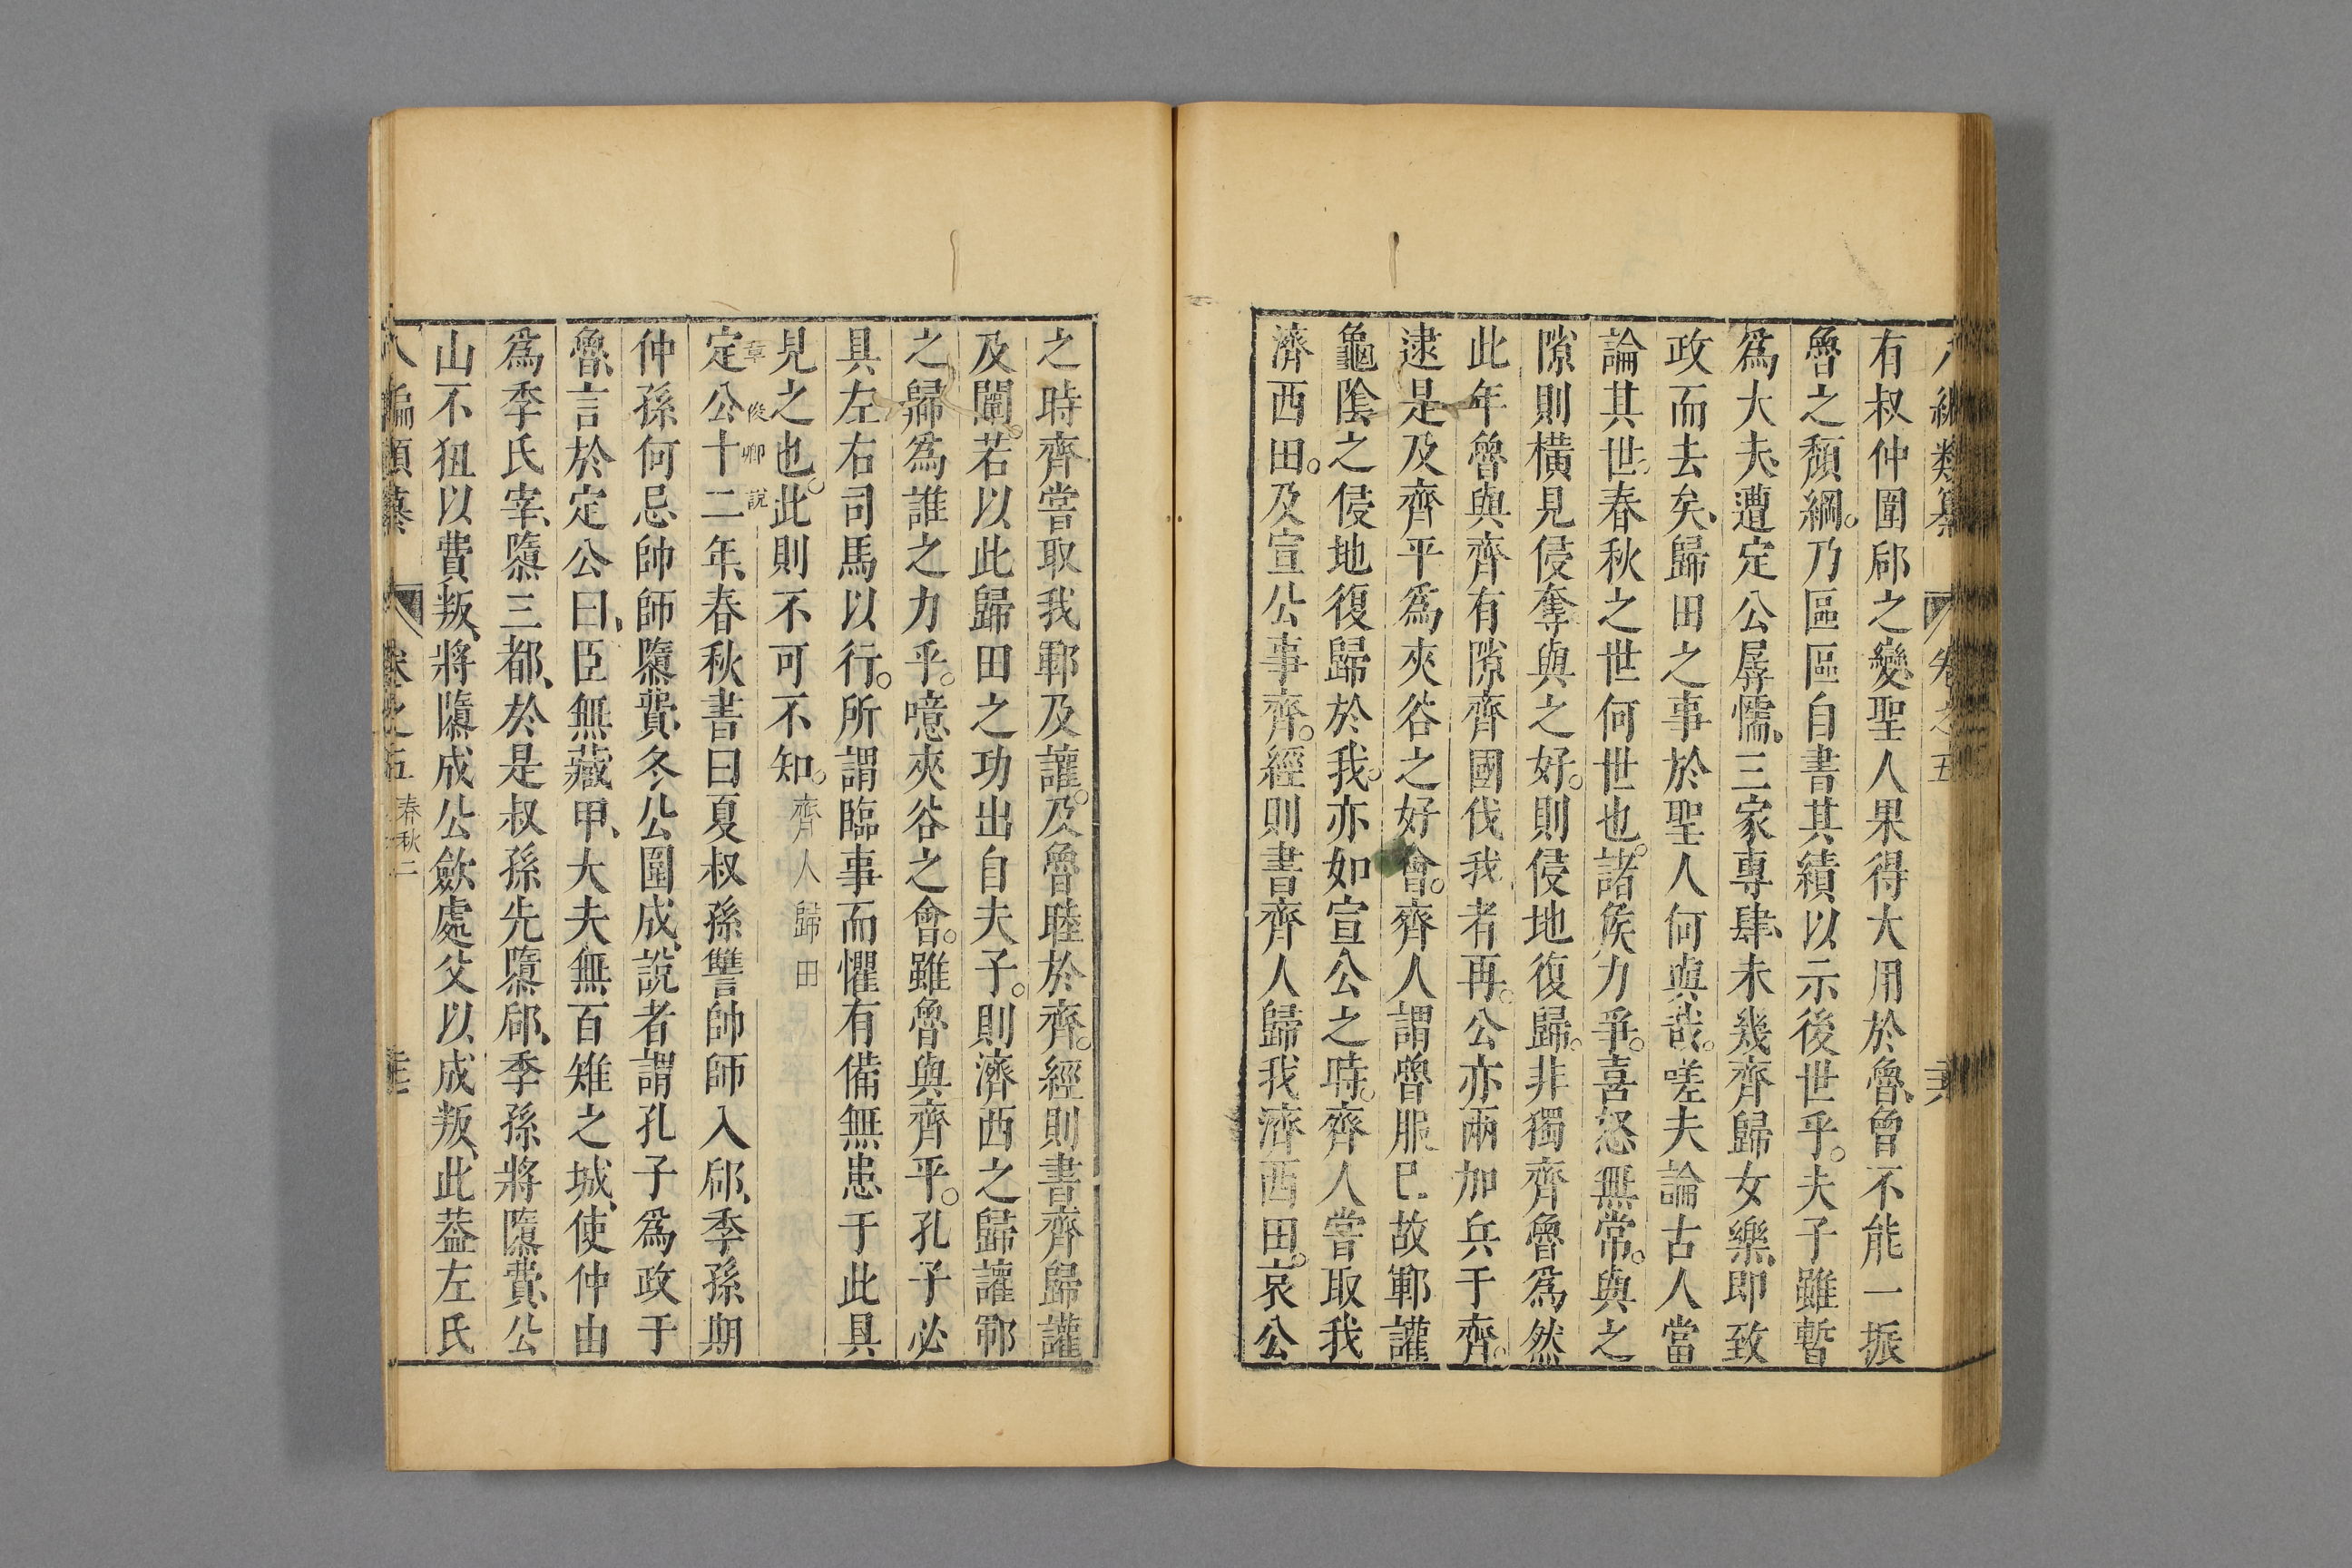 八編類纂 卷之五
有叔仲圍郈之變聖人果得大用於魯、曾不能一振
魯之頹綱。乃區區自書其績以示後世乎。夫子雖暫
爲大夫、遭定公孱懦、三家專肆、未幾齊歸女樂、即致
政而去矣、歸田之事於聖人何與哉。嗟夫論古人當
論其世。春秋之世何世也。諸侯力爭。喜怒無常。與之
隙則橫見侵奪與之好。則侵地復歸。非獨齊魯爲然
此年魯與齊有隙齊國伐我者再。公亦兩加兵于齊。
逮是及齊平爲夾谷之好會。齊人謂魯服已故鄆讙
龜陰之侵地復歸於我。亦如宣公之時。齊人嘗取我
濟西田。及宣公事齊。經則書齊人歸我濟西田。哀公
之時齊嘗取我鄆及讙。及魯睦於齊。經則書齊歸讙
及闡。若以此歸田之功出自夫子。則濟西之歸讙鄆
之歸爲誰之力乎。噫夾谷之會。雖魯與齊平。孔子必
具左右司馬以行。所謂臨事而懼有備無患于此具
見之也。此則不可不知。齊人歸田
章俊卿說
定公十二年、春秋書曰夏叔孫讐帥師入郈、季孫期
仲孫何忌帥師隳費、冬公圍成、說者謂孔子爲政于
魯、言於定公曰、臣無藏甲、大夫無百雉之城、使仲由
爲季氏宰、隳三都、於是叔孫先隳郈、季孫將隳費、公
山不狃以費叛、將隳成公歛處父以成叛、此葢左氏
八編類纂 卷之五 春秋二